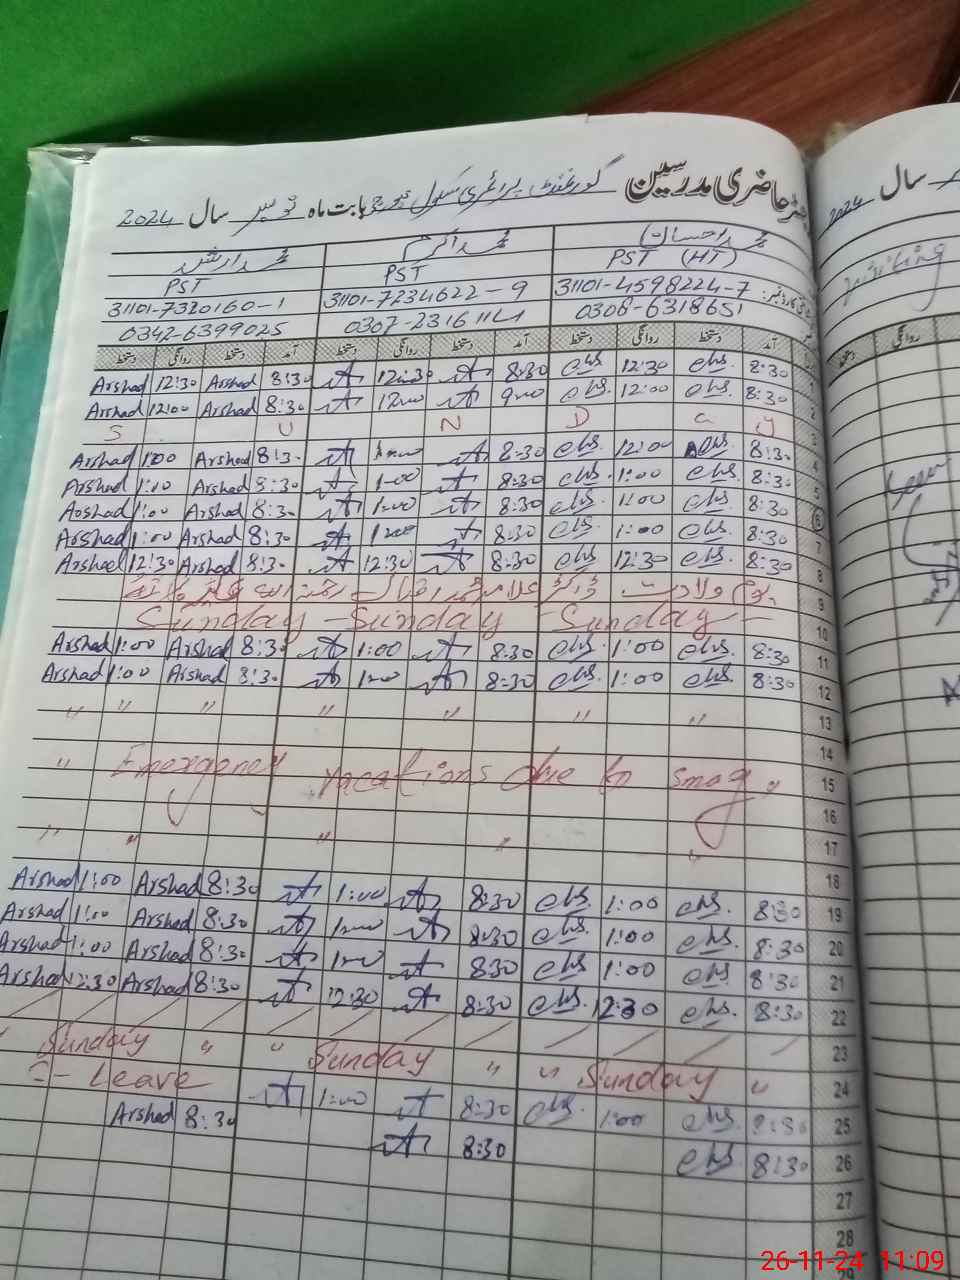 رجسٹر حاضری مدرسین گورنمنٹ پرائمری سکول بابت ماہ نومبر سال 2024
محمد احسان محمد اکرم محمد ارشد
PST (HT) PST PST
31101-4598224-7 31101-7234622-9 31101-7320160-1
0306-6318651 0307-2316114 0342-6399025
آمد دستخط روانگی دستخط آمد دستخط روانگی دستخط آمد دستخط روانگی دستخط
Arshad 12:30 Arshad 8:30 12:30 8:30 ehs. 12:30 ehs. 8:30 1
Arshad 12:00 Arshad 8:30 12:00 9:00 ehs. 12:00 ehs. 8:30 2
S U N D a y 3
Arshad 1:00 Arshad 8:30 8:30 ehs. 12:00 ehs. 8:30 4
Arshad 1:00 Arshad 8:30 1:00 8:30 ehs. 1:00 ehs. 8:30 5
Arshad 1:00 Arshad 8:30 1:00 8:30 ehs. 1:00 ehs. 8:30 6
Arshad 1:00 Arshad 8:30 1:00 8:30 ehs. 1:00 ehs. 8:30 7
Arshad 12:30 Arshad 8:30 12:30 8:30 ehs. 12:30 ehs. 8:30 8
یوم ولادت ڈاکٹر علامہ محمد اقبال رحمتہ اللہ علیہ 9
Sunday - Sunday - Sunday - 10
Arshad 1:00 Arshad 8:30 1:00 8:30 ehs. 1:00 ehs. 8:30 11
Arshad 1:00 Arshad 8:30 1:00 8:30 ehs. 1:00 ehs. 8:30 12
" " " " " " " 13
14
" Emergency vacations due to smog " 15
16
" " " " " 17
18
Arshad 1:00 Arshad 8:30 1:00 8:30 ehs. 1:00 ehs. 8:30 19
Arshad 1:00 Arshad 8:30 1:00 8:30 ehs. 1:00 ehs. 8:30 20
Arshad 1:00 Arshad 8:30 1:00 8:30 ehs. 1:00 ehs. 8:30 21
Arshad 12:30 Arshad 8:30 12:30 8:30 ehs. 12:30 ehs. 8:30 22
23
Sunday " " Sunday " " Sunday " 24
Leave 1:00 8:30 ehs. 1:00 ehs. 8:30 25
Arshad 8:30 8:30 ehs 8:30 26
27
28
29
سال 2024
روانگی دستخط
26-11-24 11:09